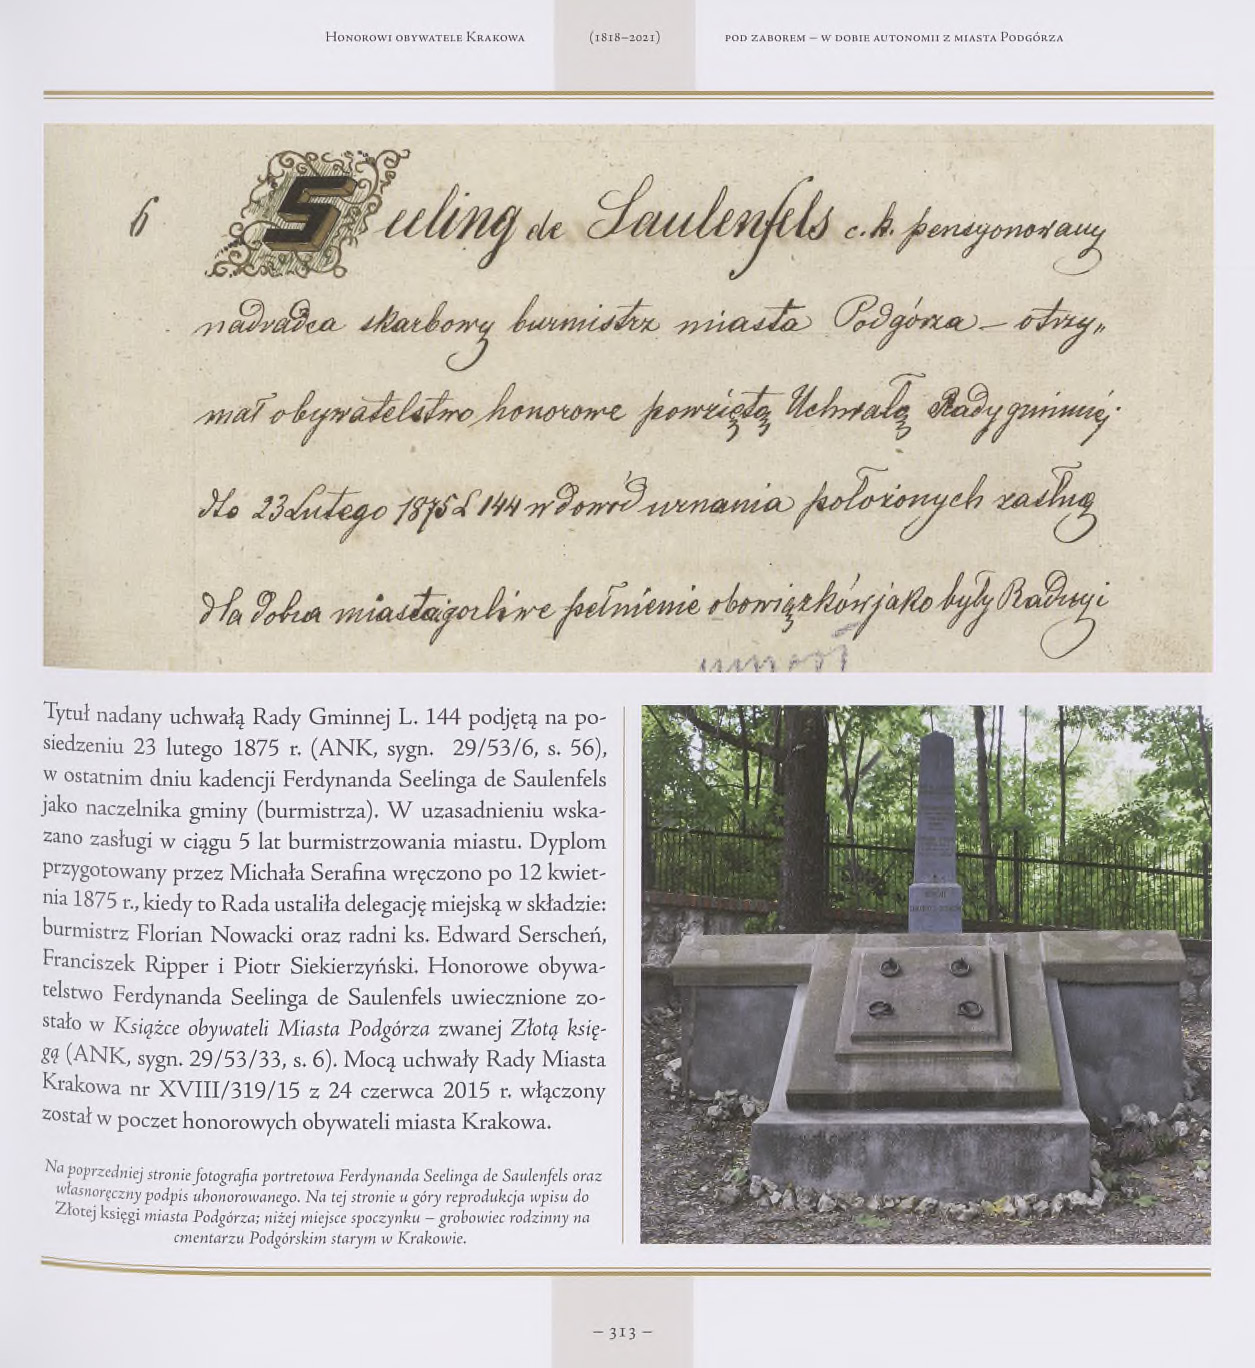 Honorowi obywatele Krakowa (1818–2021) pod zaborem – w dobie autonomii z miasta Podgórza
6 Seeling de Saulenfels c. k. pensyonowany
nadradca skarbowy burmistrz miasta Podgórza – otrzy„
mał obywatelstwo honorowe powziętą Uchwałą Rady gminnéj
dto 23 Lutego 1875 L 144 w dowód uznania położonych zasług
dla dobra miasta i gorliwe pełnienie obowiązków jako były Radny i
Tytuł nadany uchwałą Rady Gminnej L. 144 podjętą na po-
siedzeniu 23 lutego 1875 r. (ANK, sygn. 29/53/6, s. 56),
w ostatnim dniu kadencji Ferdynanda Seelinga de Saulenfels
jako naczelnika gminy (burmistrza). W uzasadnieniu wska-
zano zasługi w ciągu 5 lat burmistrzowania miastu. Dyplom
przygotowany przez Michała Serafina wręczono po 12 kwiet-
nia 1875 r., kiedy to Rada ustaliła delegację miejską w składzie:
burmistrz Florian Nowacki oraz radni ks. Edward Serscheń,
Franciszek Ripper i Piotr Siekierzyński. Honorowe obywa-
telstwo Ferdynanda Seelinga de Saulenfels uwiecznione zo-
stało w Książce obywateli Miasta Podgórza zwanej Złotą księ-
gą (ANK, sygn. 29/53/33, s. 6). Mocą uchwały Rady Miasta
Krakowa nr XVIII/319/15 z 24 czerwca 2015 r. włączony
został w poczet honorowych obywateli miasta Krakowa.
Na poprzedniej stronie fotografia portretowa Ferdynanda Seelinga de Saulenfels oraz
własnoręczny podpis uhonorowanego. Na tej stronie u góry reprodukcja wpisu do
Złotej księgi miasta Podgórza; niżej miejsce spoczynku – grobowiec rodzinny na
cmentarzu Podgórskim starym w Krakowie.
– 313 –